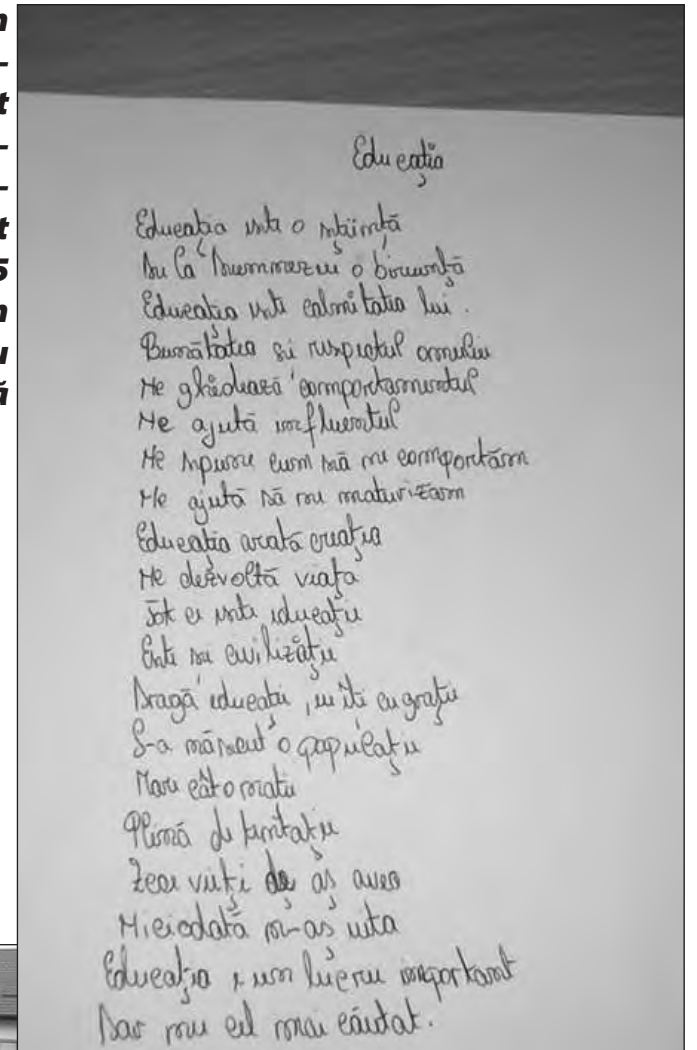 n
–
t
–
–
t
5
n
u
ă
Educația
Educația este o știință
De la Dumnezeu o
Educația este calmitatea lui.
Bunătatea si respectul omului
Ne ghidează comportamentul
Ne ajută influentul
Ne spune cum să ne comportăm
Ne ajută să ne maturizam
Educatia arata creația
Ne dezvoltă viața
Tot ce este educație
Este se civilizație
Dragă educatie, ești cu grație
S-a născut o populație
Mare cât o nație
Plină de tentație
Zece vieți de aș avea
Niciodată n-aș uita
Educația e un lucru important
Dar nu cel mai căutat.